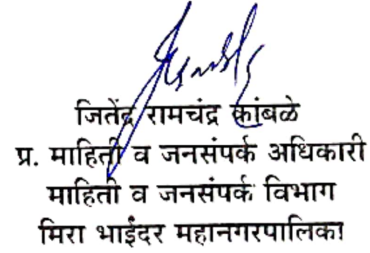 जितेंद्र रामचंद्र कांबळे
प्र. माहिती व जनसंपर्क अधिकारी
माहिती व जनसंपर्क विभाग
मिरा भाईंदर महानगरपालिका